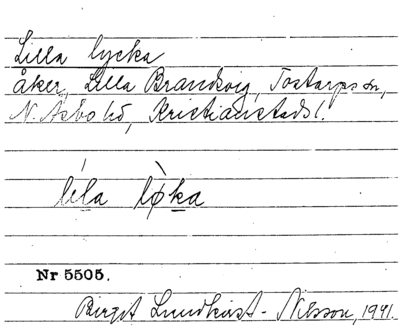 Lilla lycka
åker, Lilla Brandsvig, Tostarps sn,
N. Åsbo hd, Kristianstads l.
líla lø̀ka
Nr 5505.
Birgit Lundkvist-Nilsson, 1941.